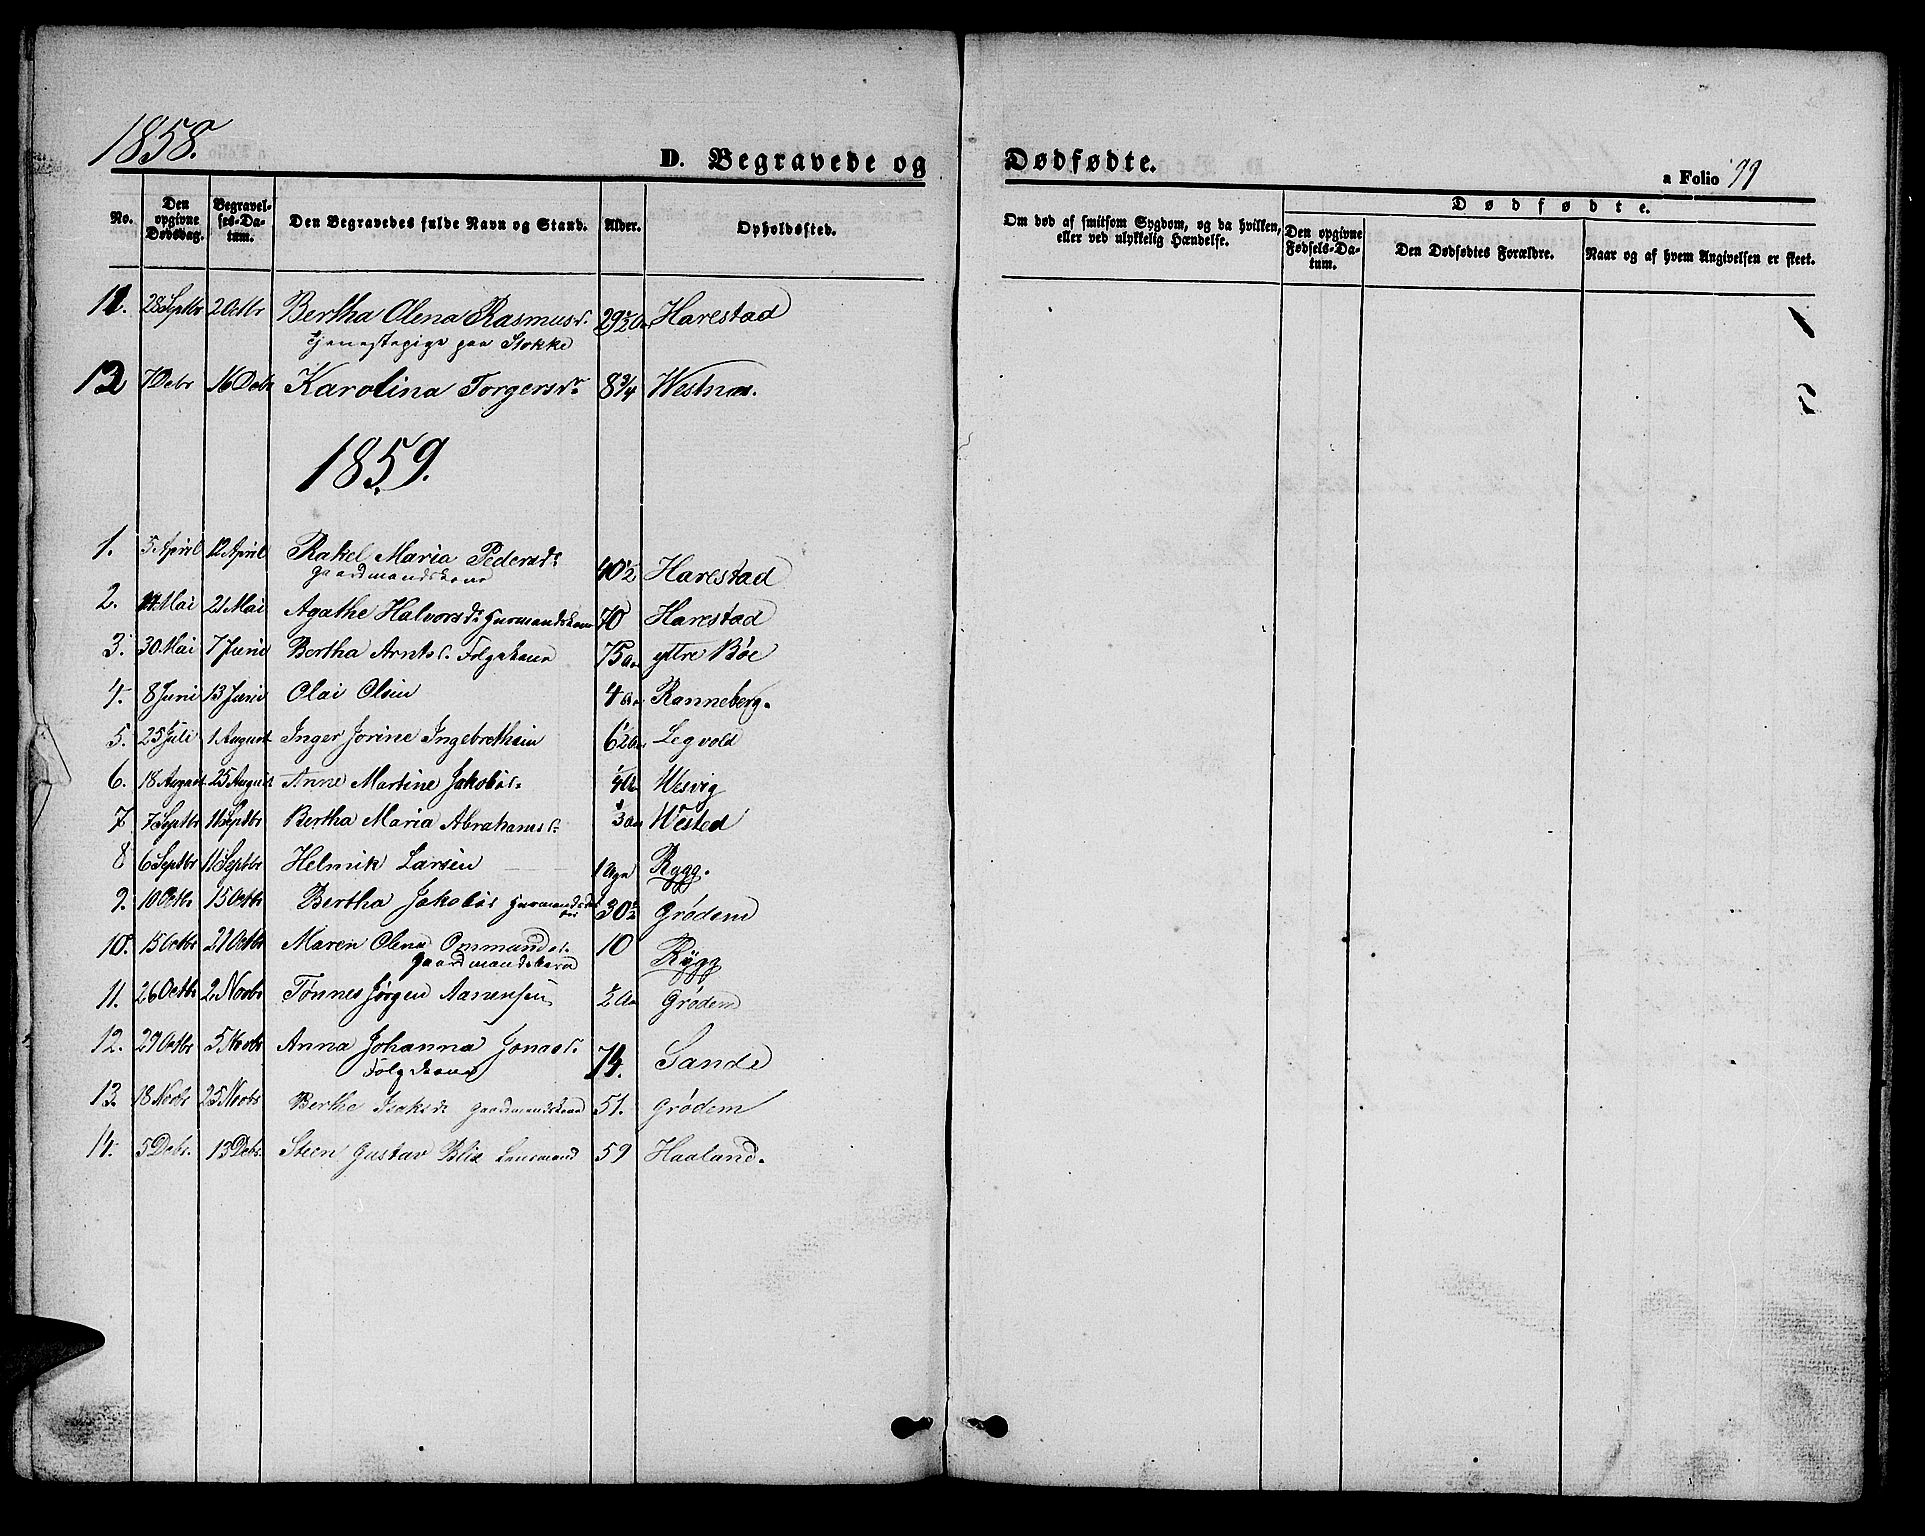 1858.
D. Begravede og
Dødfødte.
a Folio 99
No.
Den opgivne Dødsdag.
Begravelses-Datum.
Den Begravedes fulde Navn og Stand.
Alder.
Opholdssted.
Om død af smitsom Sygdom, og da hvilken, eller ved ulykkelig Hændelse.
Dødfødte.
Den opgivne Fødsels-Datum.
Den Dødfødtes Forældre.
Naar og af hvem Angivelsen er skeet.
11. 28 Septbr 2 Octbr Bertha Olena Rasmusd. Harestad
Tjenestepige paa Stokke
12 7 Debr 16 Debr Karolina Torgersdr 8 3/4 Westnæs.
1859.
1. 5 April 12 April Rakel Maria Pedersdr 40 1/2 Harestad
gaardmandskone
2. 14 Mai 21 Mai Agathe Halvorsdr gurmandskone 70 Harestad
3. 30 Mai 7 Juni Bertha Arntsd. Folgekone 75 Aar yttre Bøe
4. 8 Juni 13 Juni Olai Olsen 4 Aar Ranneberg.
5. 25 Juli 1 August Inger Jorine Ingebrethsen Legvold
6. 18 August 25 August Anne Martine Jakobsd. Wesvig
7 7 Septbr 11 Septbr Bertha Maria Abrahamsd. Wested
8 6 Septbr 11 Septbr Helmik Larsen Rygg.
9. 10 Octbr 15 Octbr Bertha Jakobsd 30 1/2 Grødem
10. 15 Octbr 21 Octbr Maren Olena Ommundsd. 10 Rygg
gaardmandskone
11. 26 Octbr 2 Novbr Tønnes Jørgen Aanensen 1/2 Aar Grødem
12. 29 Octbr 5 Novbr Anna Johanna Jonasd. 74. Sande
Folgekone
13. 18 Novbr 25 Novbr Berthe Isaksdr gaardmandskone 51. Grødem
14. 5 Debr. 13 Debr. Steen Gustav Blix Lensmand 59 Haaland.